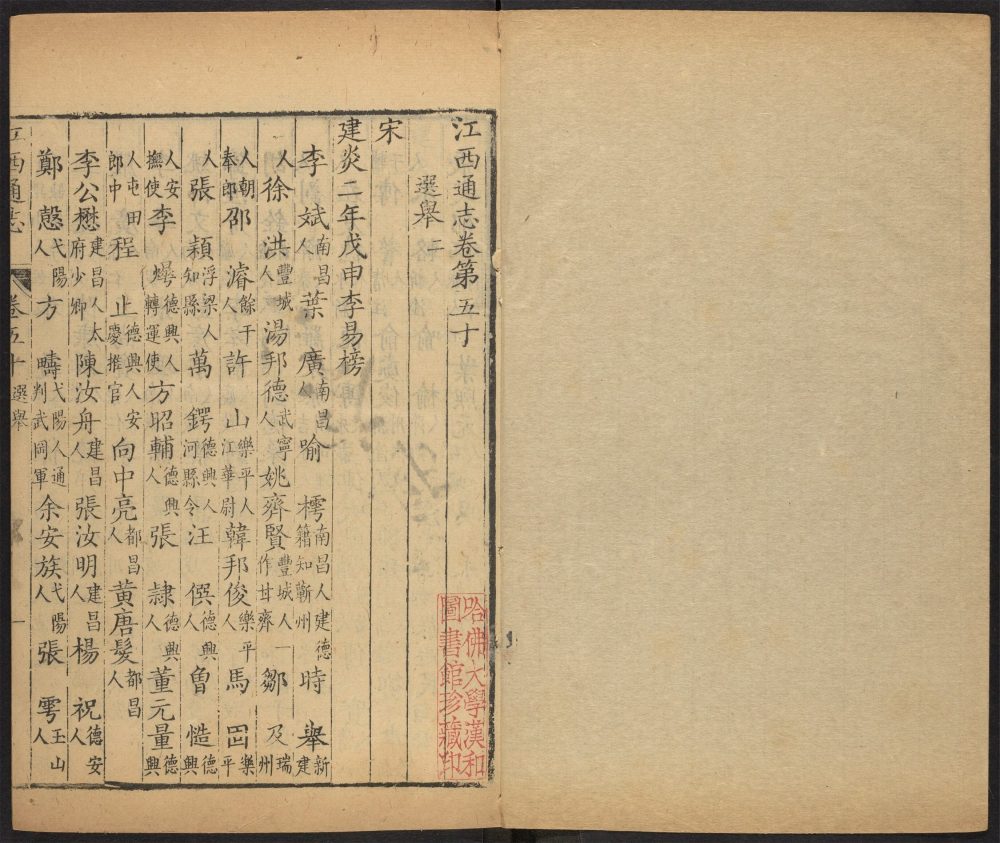 江西通志卷第五十
選舉二
宋
建炎二年戊申李易榜
李斌南昌人葉廣南昌人喻樗南昌人建德籍知蘄州時舉新建
人徐洪豐城人湯邦德武寧人姚齊賢豐城人一作甘齊鄒及瑞州
人朝奉郎邵濬餘干人許山樂平人江華尉韓邦俊樂平人馬固樂平
人張穎浮梁人知縣萬鍔德興人河縣令汪侯德興人曾慥德興
人安撫使李德興人轉運使方昭輔德興人張隸德興人董元量德興
人屯田郎中程止德興人安慶推官向中亮都昌人黃唐髮都昌人
李公懋建昌人太府少卿陳汝舟建昌人張汝明建昌人楊祝德安人
鄭慤弋陽人方疇弋陽人通判武岡軍余安族弋陽人張雩玉山人
江西通志
卷五十
選舉
一
哈佛大學漢和
圖書館珍藏印